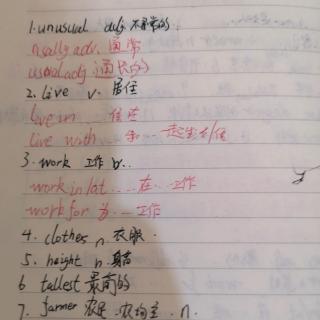 1. unusual adj. 不寻常的
usually adv. 通常
usual adj 通常的
2. live v. 居住
live in ... 住在
live with 和...一起生活/住
3. work 工作 v.
work in/at ... 在...工作
work for 为...工作
4. clothes n. 衣服.
5. height n. 身高
6 tallest 最高的
7. farmer 农民.农场主. n.